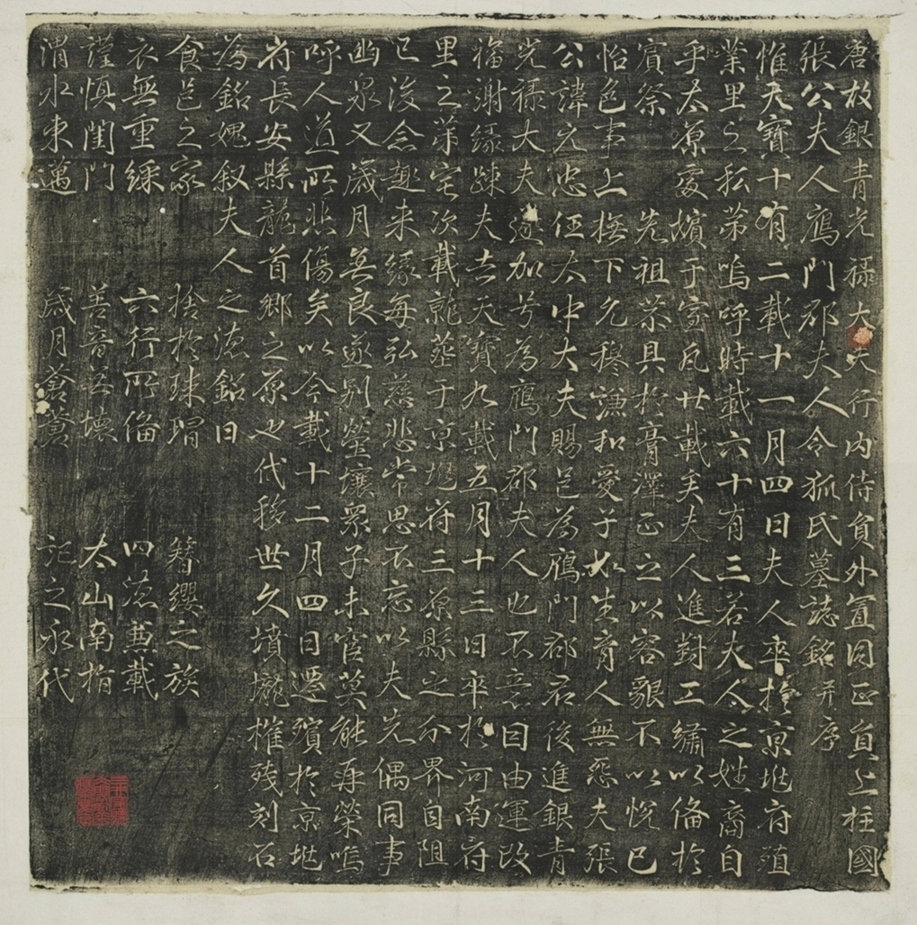 唐故銀青光祿大夫行內侍員外置同正員上柱國
張公夫人鴈門郡夫人令狐氏墓誌銘并序
惟天寶十有二載十一月四日夫人卒於京兆府殖
業里之私第嗚呼時載六十有三若夫人之姓裔自
乎太原爰嬪于室凡廿載矣夫人進對工繡以俻於
賓祭先祖恭具於膏澤正之以容貌不以悅己
怡色事上撫下允穆謙和愛子如生育人無惡夫張
公諱元忠任太中大夫賜邑為鴈門郡君後進銀青
光祿大夫迺加号為鴈門郡夫人也不意日由運改
福謝緣踈夫去天寶九載五月十三日卒於河南府
里之第宅次載就葬于京兆府三原縣之分界自阻
已後念趣来緣每弘慈悲常思不忘以夫先偶同事
幽泉又歲月無良遂别塋壤衆子未官莫能再榮嗚
呼人道所悲傷矣以今載十二月四日遷殯於京兆
府長安縣龍首鄉之原也代移世久墳壠摧殘刻石
為銘媿叙夫人之德銘曰
食邑之家 捨於珠瑁 簪纓之族
衣無重綵 六行所俻 四德兼載
謹慎閨門 善音無壞 太山南指
渭水東邁 歲月蒼蒼 記之永代